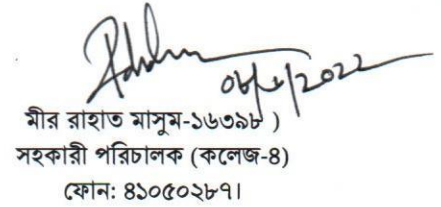 মীর রাহাত মাসুম-১৬৩৯৮ )
সহকারী পরিচালক (কলেজ-৪)
ফোন: ৪১০৫০২৮৭।